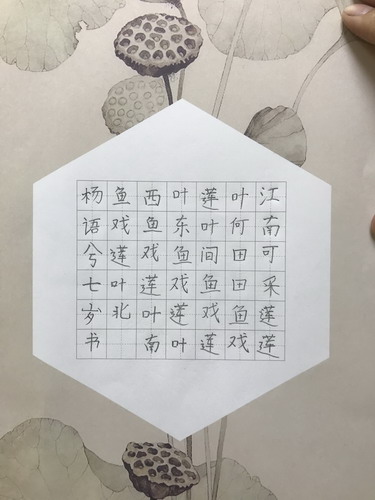 江南可采莲莲
叶何田田鱼戏
莲叶间鱼戏莲
叶东鱼戏莲叶
西鱼戏莲叶南
鱼戏莲叶北
杨语兮七岁书